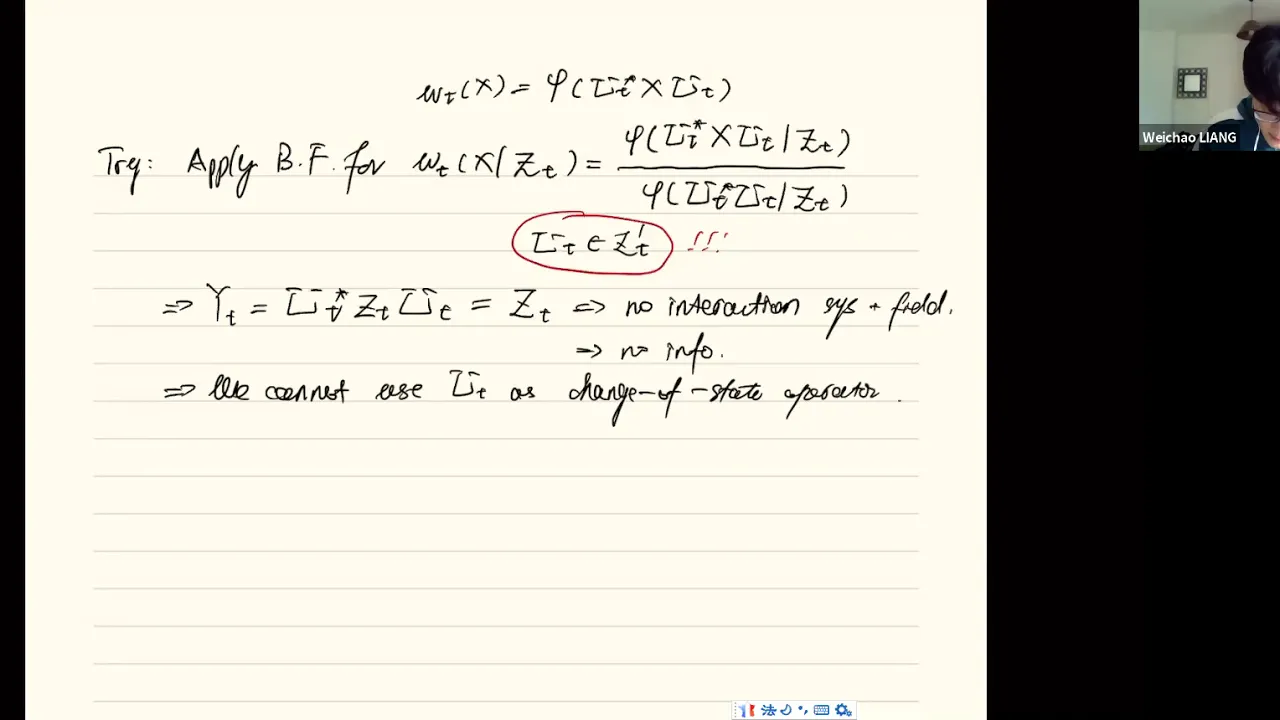 ω_t(X) = φ(U_t* X U_t)
Try: Apply B.F. for ω_t(X|Z_t) = φ(U_t* X U_t | Z_t) / φ(U_t* U_t | Z_t)
U_t ∈ Z_t' !!!
⇒ Y_t = U_t* Z_t U_t = Z_t ⇒ no interaction sys + field.
⇒ no info.
⇒ We cannot use U_t as change-of-state operator.
Weichao LIANG
法